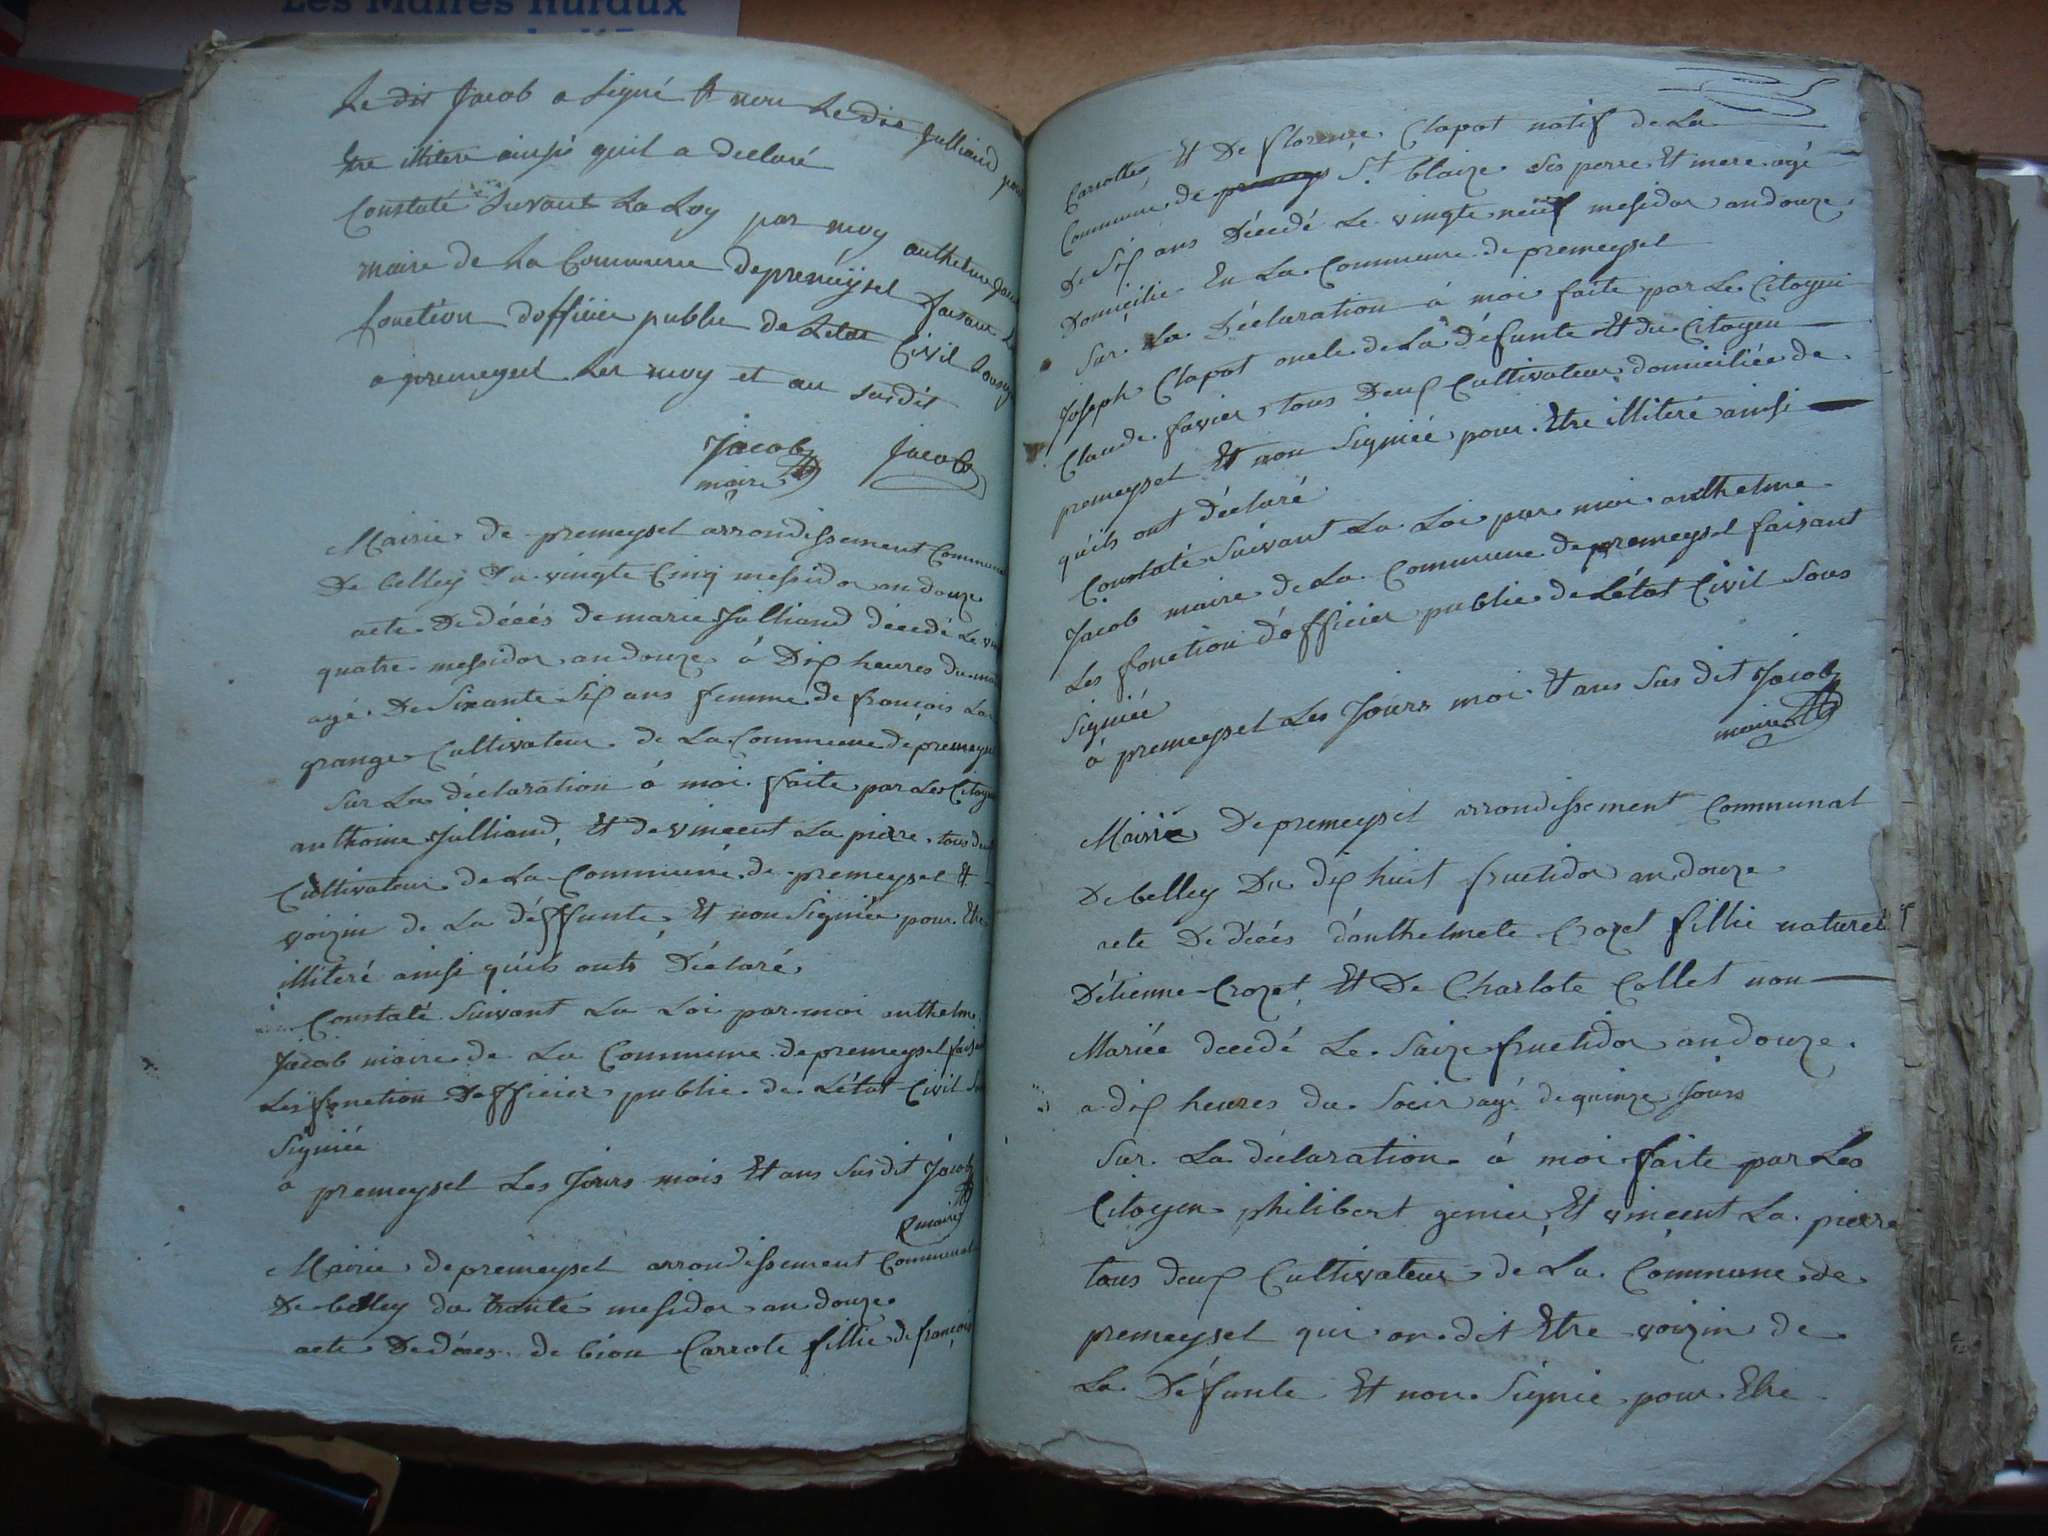 Les Maires ruraux
Le dit Jacob a signé Et non Le dit Julliand pour
Etre illitere ainsi quil a declaré
Constaté suvant La Loy par moy anthelme Jacob
maire de La Commune depremeysel faisant Les
fonction dofficier public de Letat Civil Soussigné
a premeysel Les moy et an susdit
Jacob Jacob
maire
Mairie de premeysel arrondissement Communal
De belley Du vingte Cinq messidor an douze
acte De décés de marie Julliand décedé Le vingt
quatre messidor an douze á Dix heures du matin
agé De Sixante Six ans femme de francois La
grange Cultivateur de La Commune de premeysel
Sur La déclaration á moi faite par Les Citoyen
anthoine Julliand, Et de vincent La pierre tous deux
Cultivateur de La Commune de premeysel Et
voizin de La déffunte Et non Signiée pour Etre
illiteré ainsi qu'ils onts Déclaré
Constaté Suivant La Loi par moi anthelme
Jacob maire de La Commune de premeysel faisant
Les fonction Dofficier public de L'état Civil Sous
Signiée
a premeysel Les Jours mois Et ans Susdit Jacob
maire
Mairie de premeysel arrondissement Communal
De belley du trante mesidor an douze
acte De déces de Carrote fillie de francois
Carrotte, Et De florence Clapot natif de La
Commune de premeys St blaize Ses perre Et mere agé
De Six ans Décedé Le vingte neuf mesidor an douze
Domicilie En La Commune de premeysel
Sur La Déclaration á moi faite par Les Citoyen
Joseph Clapot oncle de La défunte Et du Citoyen
Claude favier tous Deux Cultivateur domiciliée de
premeysel Et non Signiée pour Etre illiteré ainsi
qu'ils ont déclaré
Constaté Suivant La Loi par moi anthelme
Jacob maire de La Commune de premeysel faisant
Les fonction d'officier public de L'état Civil Sous
Signiée
á premeysel Les Jours moi Et ans Sus dit Jacob
maire
Mairie De premeysel arrondissement Communal
De belley Du dix huit fructidor an douze
acte De décés d'anthelmete Crozet fillie naturel
D'étienne Crozet, Et De Charlote Collet non
Mariée decedé Le Saize fructidor an douze
a dix heures du Soeir agé de quinze Jours
Sur La déclaration á moi faite par Les
Citoyen philibert genier Et vincent La pierre
tous deux Cultivateur de La Commune de
premeysel qui on dit Etre voizin de
La Défunte Et non Signie pour Etre